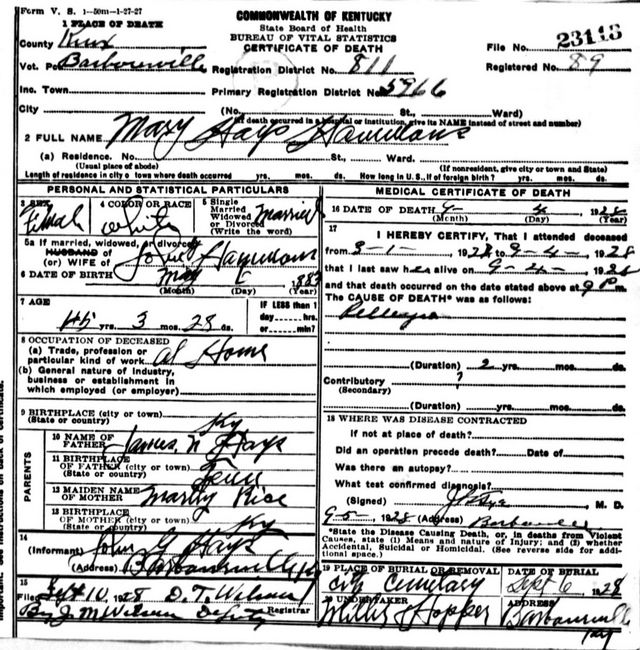 Form V. S. 1-50m-1-27-27
COMMONWEALTH OF KENTUCKY
State Board of Health
BUREAU OF VITAL STATISTICS
CERTIFICATE OF DEATH
1 PLACE OF DEATH
County Knox
File No. 23113
Vot. Barbourville
Registration District No. 811
Registered No. 89
Inc. Town
Primary Registration District No. 5966
City (No. St., Ward)
(If death occurred in a hospital or institution, give its NAME instead of street and number)
2 FULL NAME Mary Hays
(a) Residence. No. St., Ward.
(Usual place of abode) (If nonresident, give city or town and State)
Length of residence in city or town where death occurred yrs. mos. ds. How long in U. S., if of foreign birth? yrs. mos. ds.
PERSONAL AND STATISTICAL PARTICULARS
3 SEX Female
4 COLOR OR RACE White
5 Single Married Widowed or Divorced (Write the word) Married
5a If married, widowed, or divorced
HUSBAND of
(or) WIFE of
6 DATE OF BIRTH May 1883
(Month) (Day) (Year)
7 AGE
45 yrs. 3 mos. 28 ds.
IF LESS than 1
day hrs.
or min?
8 OCCUPATION OF DECEASED
(a) Trade, profession or particular kind of work at Home
(b) General nature of industry,
business or establishment in
which employed (or employer)
9 BIRTHPLACE (city or town)
(State or country) Ky
PARENTS
10 NAME OF FATHER James N Hays
11 BIRTHPLACE OF FATHER (city or town)
(State or country) Tenn
12 MAIDEN NAME OF MOTHER Rice
13 BIRTHPLACE OF MOTHER (city or town)
(State or country) Ky
14
(Informant) John G Hays
(Address) Barbourville Ky
15
Filed Sept 10, 1928 D. T. Wilson
By J M Wilson Deputy Registrar
MEDICAL CERTIFICATE OF DEATH
16 DATE OF DEATH 9- 4- 1928
(Month) (Day) (Year)
17
I HEREBY CERTIFY, That I attended deceased
from 3-1-, 1928 to 9-4-, 1928
that I last saw her alive on 9-4-, 1928
and that death occurred on the date stated above at 9 P m.
The CAUSE OF DEATH* was as follows:
Pellagra
(Duration) 2 yrs. mos. ds.
Contributory ?
(Secondary)
(Duration) yrs. mos. ds.
18 WHERE WAS DISEASE CONTRACTED
if not at place of death?
Did an operation precede death? Date of
Was there an autopsy?
What test confirmed diagnosis?
(Signed) M. D.
9-5-, 1928 (Address) Barbourville
*State the Disease Causing Death, or, in deaths from Violent
Causes, state (1) Means and nature of Injury; and (2) whether
Accidental, Suicidal or Homicidal. (See reverse side for addi-
tional space.)
19 PLACE OF BURIAL OR REMOVAL City Cemetary
DATE OF BURIAL Sept 6 1928
20 UNDERTAKER Hopper
ADDRESS Barbourville Ky